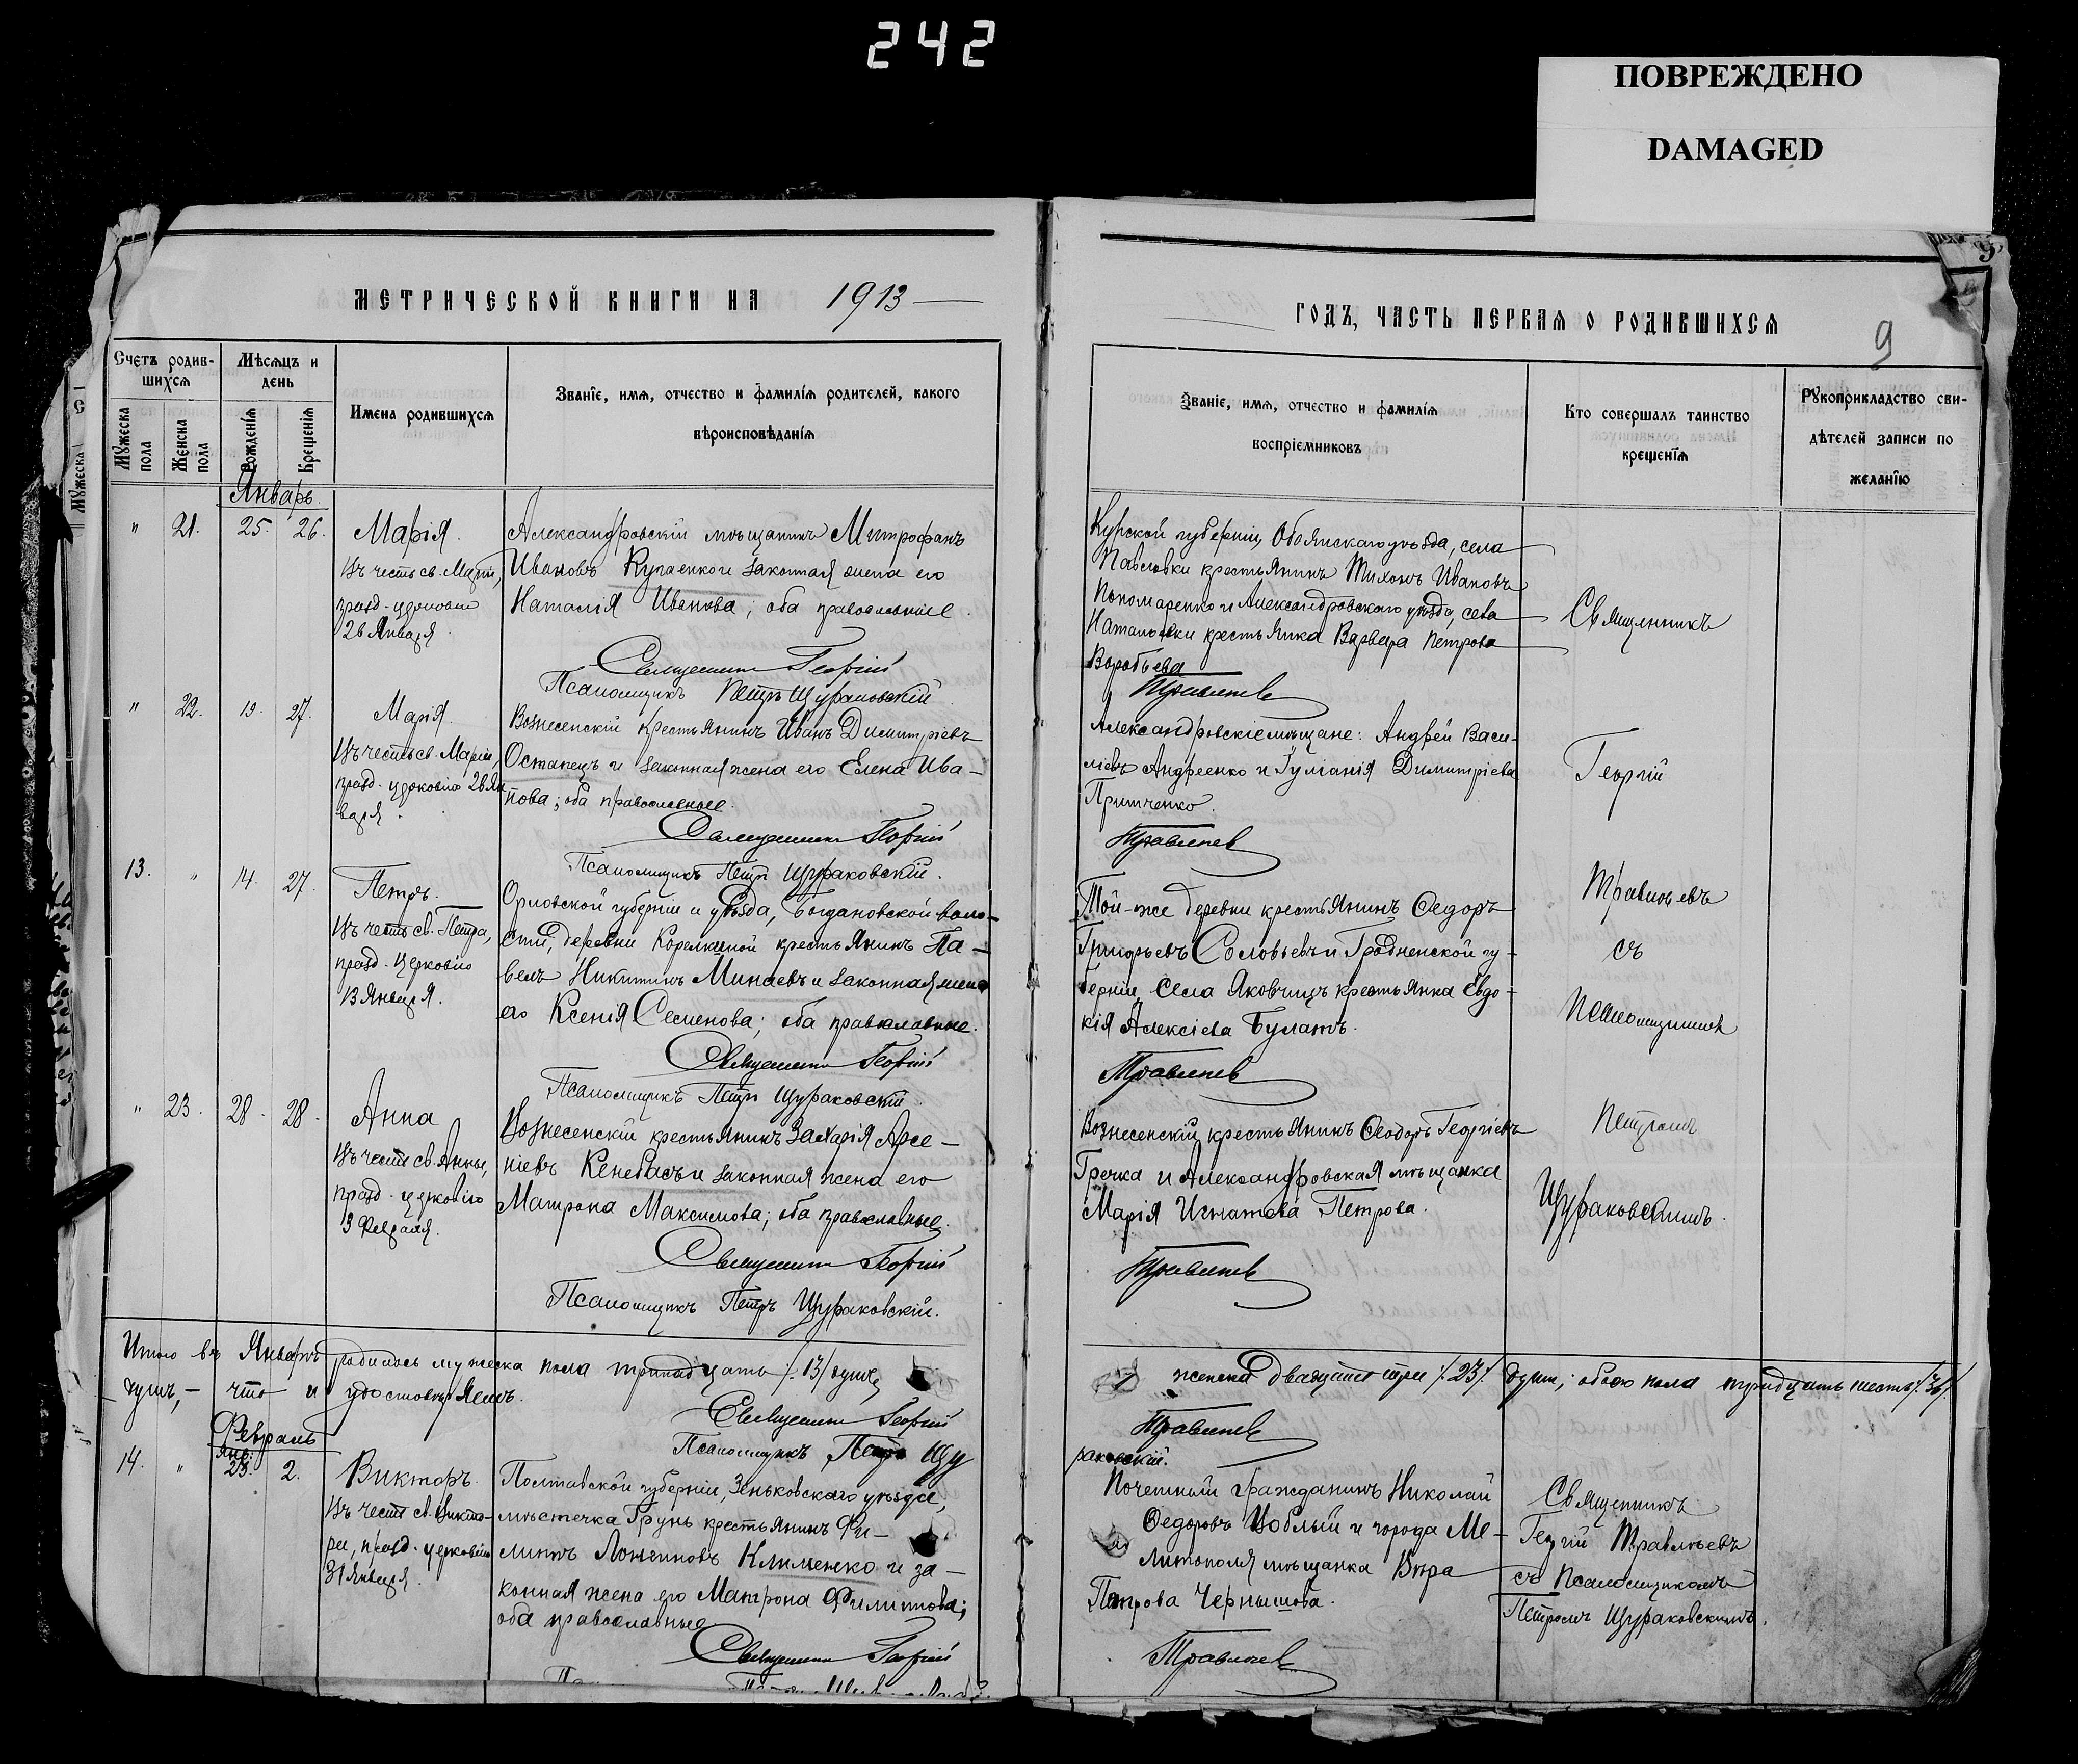 242
ПОВРЕЖДЕНО
DAMAGED
МЕТРИЧЕСКОЙ КНИГИ НА 1913
ГОДЪ, ЧАСТЬ ПЕРВАЯ О РОДИВШИХСЯ
9
Счетъ родив-
шихся
Мѣсяцъ и
день
Мужеска пола
Женска пола
Рожденія
Крещенія
Имена родившихся
Званіе, имя, отчество и фамилія родителей, какого
вѣроисповѣданія
Званіе, имя, отчество и фамилія
воспріемниковъ
Кто совершалъ таинство
крещенія
Рукоприкладство сви-
дѣтелей записи по
желанію
Январь.
" 21. 25. 26.
Марія.
Въ честь св. Маріи,
празд. церковію
26 Января.
Александровскій мѣщанинъ Митрофанъ
Ивановъ и законная жена его
Наталія Иванова; оба православные.
Священникъ Георгій
Псаломщикъ Петръ Щураковскій
Курской губерніи, Обоянскаго уѣзда, села
Павловки крестьянинъ Тихонъ Ивановъ
Пономаренко и Александровскаго уѣзда, села
Наталовки крестьянка Варвара Петрова
Воробьева
Травлѣевъ
" 22. 19. 27.
Марія.
Въ честь св. Маріи,
празд. церковію 26 Ян
варя.
Вознесенскій крестьянинъ Иванъ Димитріевъ
Остапецъ и законная жена его Елена Ива-
нова; оба православные.
Священникъ Георгій
Псаломщикъ Петръ Щураковскій.
Александровскіе мѣщане: Андрей Васи-
ліевъ Андреенко и Іуліанія Димитріева
Притченко.
Травлѣевъ
13. " 14. 27.
Петръ.
Въ честь св. Петра,
празд. церковію
13 Января.
Орловской губерніи и уѣзда, Богдановской воло-
сти, деревни Корелкиной крестьянинъ Па-
велъ Никитинъ Минаевъ и законная жена
его Ксенія Семенова; оба православные.
Священникъ Георгій
Псаломщикъ Петръ Щураковскій.
Той-же деревни крестьянинъ Ѳедоръ
Григорьевъ Соловьевъ и Гродненской гу-
берніи, села Яковчицъ крестьянка Евдо-
кія Алексіева Булатъ.
Травлѣевъ
" 23. 28. 28.
Анна
Въ честь св. Анны,
празд. церковію
3 Февраля.
Вознесенскій крестьянинъ Захарія Арсе-
ніевъ Кенебасъ и законная жена его
Матрона Максимова; оба православные.
Священникъ Георгій
Псаломщикъ Петръ Щураковскій.
Вознесенскій крестьянинъ Ѳеодоръ Георгіевъ
Гречка и Александровская мѣщанка
Марія Игнатова Петрова.
Травлѣевъ
Священникъ
Георгій
Травлѣевъ
съ
псаломщикомъ
Петромъ
Щураковскимъ.
Итого въ Январѣ родилось мужеска пола тринадцать /13/ душъ, женска двадцать три /23/ душъ; обоего пола тридцать шесть /36/
душъ, - что и удостовѣряемъ.
Священникъ Георгій Травлѣевъ
Псаломщикъ Петръ Щу
раковскій.
Февраль
Янв.
14. " 23. 2.
Викторъ.
Въ честь св. Викто-
ра, празд. церковію
31 Января.
Полтавской губерніи, Зеньковскаго уѣзда,
мѣстечка Грунь крестьянинъ Фи-
липпъ Лонгиновъ Клименко и за-
конная жена его Матрона Филиппова;
оба православные
Священникъ Георгій
Почетный гражданинъ Николай
Ѳедоровъ и города Ме-
литополя мѣщанка Вѣра
Петрова Чернышова.
Травлѣевъ
Священникъ
Георгій Травлѣевъ
съ псаломщикомъ
Петромъ Щураковскимъ.